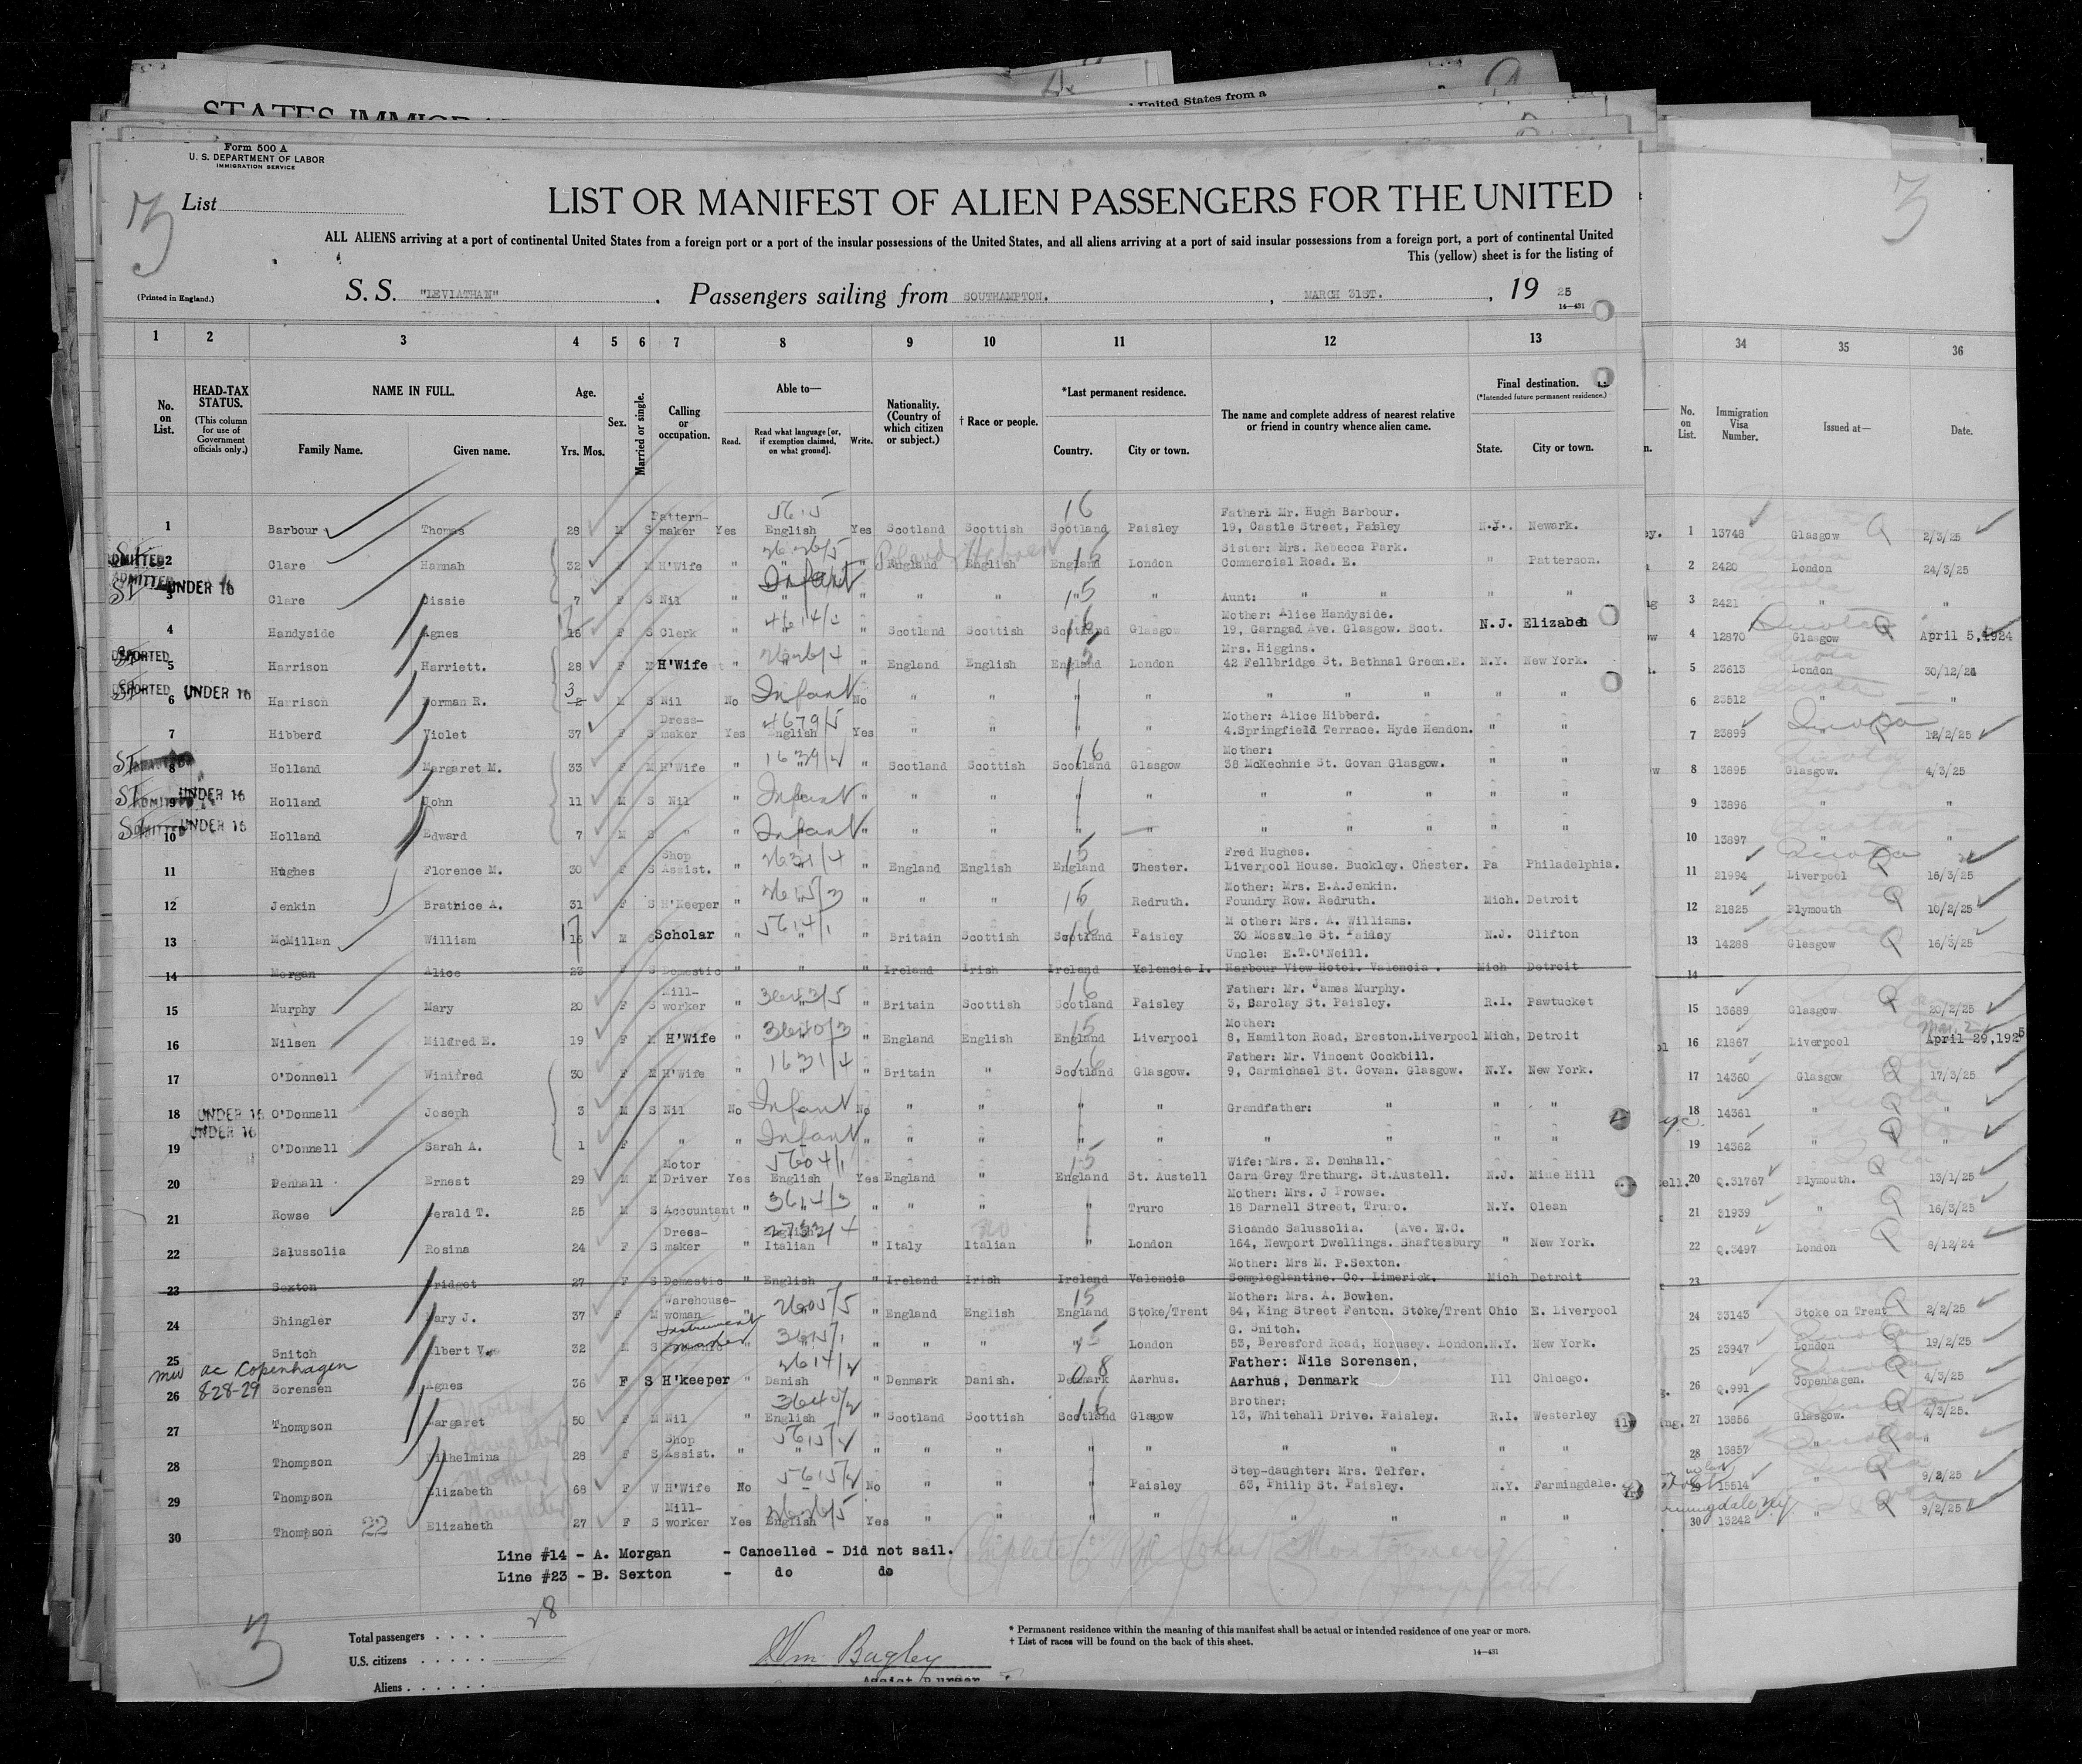 STATES IMMIGR
United States from a
Form 500 A
U. S. DEPARTMENT OF LABOR
IMMIGRATION SERVICE
3 List
3
LIST OR MANIFEST OF ALIEN PASSENGERS FOR THE UNITED
ALL ALIENS arriving at a port of continental United States from a foreign port or a port of the insular possessions of the United States, and all aliens arriving at a port of said insular possessions from a foreign port, a port of continental United
This (yellow) sheet is for the listing of
(Printed in England.) S. S. "LEVIATHAN" . Passengers sailing from SOUTHAMPTON. , MARCH 31ST. , 19 25
14—431
1 2 3 4 5 6 7 8 9 10 11 12 13 34 35 36
No. on List. HEAD-TAX STATUS. (This column for use of Government officials only.) NAME IN FULL. Family Name. Given name. Age. Yrs. Mos. Sex. Married or single. Calling or occupation. Able to— Read. Read what language [or, if exemption claimed, on what ground]. Write. Nationality. (Country of which citizen or subject.) † Race or people. *Last permanent residence. Country. City or town. The name and complete address of nearest relative or friend in country whence alien came. Final destination. (*Intended future permanent residence.) State. City or town. No. on List. Immigration Visa Number. Issued at— Date.
Pattern- 5615 16 Father: Mr. Hugh Barbour.
1 Barbour Thomas 28 M S maker Yes English Yes Scotland Scottish Scotland Paisley 19, Castle Street, Paisley N.Y. Newark. 1 13748 Glasgow Q 2/3/25
Poland Hebrew 15 Sister: Mrs. Rebecca Park.
ADMITTED SI 2 Clare Hannah 32 F M H'Wife " " " England English England London Commercial Road. E. " Patterson. 2 2420 London 24/3/25
ADMITTED SI UNDER 16 3 Clare Cissie 7 F S Nil " Infant " " " " " Aunt: " " " " 3 2421 " "
Mother: Alice Handyside.
4 Handyside Agnes 16 F S Clerk " " " Scotland Scottish Scotland Glasgo 19, Garngad Ave. Glasgow. Scot. N.J. Elizabeh 4 12870 Glasgow Q April 5, 1924
Mrs. Higgins.
DEPORTED SI 5 Harrison Harriett. 28 F M H'Wife " " " England English England London 42 Fellbridge St. Bethnal Green.E. N.Y. New York. 5 23613 London 30/12/24
DEPORTED SI UNDER 16 6 Harrison Norman R. 3 2 M S Nil No Infant No " " " " " " " " " 6 23512 " "
Dress- 4679/5 Mother: Alice Hibberd.
7 Hibberd Violet 37 F S maker Yes English Yes " " " " 4.Springfield Terrace. Hyde Hendon. " " 7 23899 " Q 12/2/25
16 Mother:
SI 8 Holland Margaret M. 33 F M H'Wife " " " Scotland Scottish Scotland Glasgow 38 McKechnie St. Govan Glasgow. " " 8 13895 Glasgow. 4/3/25
SI ADMITTED UNDER 16 9 Holland John 11 M S Nil " Infant " " " " " " " " " " 9 13896 " "
SI ADMITTED UNDER 16 10 Holland Edward 7 M S " " Infant " " " " — " " " " " 10 13897 " "
Shop 15 Fred Hughes.
11 Hughes Florence M. 30 F S Assist. " " " England English England Chester. Liverpool House. Buckley. Chester. Pa Philadelphia. 11 21994 Liverpool Q 16/3/25
2615/3 15 Mother: Mrs. E.A.Jenkin.
12 Jenkin Bratrice A. 31 F S H'Keeper " " " " " " Redruth. Foundry Row. Redruth. Mich. Detroit 12 21825 Plymouth Q 10/2/25
17 5614/1 16 M other: Mrs. A. Williams.
13 McMillan William 16 M S Scholar " " " Britain Scottish Scotland Paisley 30 Mossvale St. Paisley N.J. Clifton 13 14288 Glasgow Q 16/3/25
Uncle: E.T.O'Neill.
14 Morgan Alice 23 F S Domestic " " " Ireland Irish Ireland Valencia I. Harbour View Hotel. Valencia . Mich Detroit 14
Mill- 16 Father: Mr. James Murphy.
15 Murphy Mary 20 F S worker " " " Britain Scottish Scotland Paisley 3, Barclay St. Paisley. R.I. Pawtucket 15 13689 Glasgow Q 20/2/25
3640/3 15 Mother: Mar. 2
16 Nilsen Mildred E. 19 F M H'Wife " " " England English England Liverpool 8, Hamilton Road, Everton.Liverpool Mich, Detroit 16 21867 Liverpool April 29,1925
1631/4 16 Father: Mr. Vincent Cockbill.
17 O'Donnell Winifred 30 F M H'Wife " " " Britain " Scotland Glasgow. 9, Carmichael St. Govan. Glasgow. N.Y. New York. 17 14360 Glasgow Q 17/3/25
18 UNDER 16 O'Donnell Joseph 3 M S Nil No Infant No " " " " Grandfather: " " " 18 14361 " Q "
UNDER 16
19 O'Donnell Sarah A. 1 F " " Infant " " " " " " " " " 19 14362 " Q "
Motor 5604/1 15 Wife: Mrs. E. Denhall.
20 Denhall Ernest 29 M M Driver Yes English Yes England " England St. Austell Carn Grey Trethurg. St.Austell. N.J. Mine Hill 20 Q.31767 Plymouth. Q 13/1/25
3614/3 Mother: Mrs. J Prowse.
21 Rowse Gerald T. 25 M S Accountant " " " " " " Truro 18 Darnell Street, Truro. N.Y. Olean 21 21939 " Q 16/3/25
Dress- English Sicando Salussolia. (Ave. W.C.
22 Salussolia Rosina 24 F S maker " Italian " Italy Italian " London 164, Newport Dwellings. Shaftesbury " New York. 22 Q.3497 London Q 8/12/24
Mother: Mrs M. P.Sexton.
23 Sexton Bridget 27 F S Domestic " English " Ireland Irish Ireland Valencia Sempleglantine. Co. Limerick. Mich Detroit 23
Warehouse- 2605/5 15 Mother: Mrs. A. Bowlen.
24 Shingler Mary J. 37 F M woman " " " England English England Stoke/Trent 84, King Street Fenton. Stoke/Trent Ohio E. Liverpool 24 33143 Stoke on Trent Q 2/2/25
Instrument maker 15 G. Snitch.
25 Snitch Albert V. 32 M S " " " " " " London 53, Beresford Road, Hornsey. London. N.Y. New York. 25 23947 London Q 19/2/25
mw ac Copenhagen 2614/2 08 Father: Nils Sorensen.
26 8-28-29 Sorensen Agnes 36 F S H'keeper " Danish " Denmark Danish. Denmark Aarhus. Aarhus, Denmark Ill Chicago. 26 Q.991 Copenhagen. Q 4/3/25
Mother 3640/2 16 Brother:
27 Thompson Margaret 50 F M Nil " English " Scotland Scottish Scotland Glasgow 13, Whitehall Drive. Paisley. R.I. Westerley 27 13856 Glasgow. Q 4/3/25.
daughter Shop 5615/2
28 Thompson Wilhelmina 28 F S Assist. " " " " " " " " " " " 28 13857 " Q "
Mother 5615/2 Step-daughter: Mrs. Telfer.
29 Thompson Elizabeth 68 F W H'Wife No – No " " " Paisley 63, Philip St. Paisley. N.Y. Farmingdale. 29 15514 " Q 9/2/25
daughter Mill- 2626/5
30 Thompson 22 Elizabeth 27 F S worker Yes English Yes " " " " " " " " 30 13242 " Q 9/2/25
Line #14 - A. Morgan - Cancelled - Did not sail.
Line #23 - B. Sexton - do do
Complete John Montgomery
Inspector
3 28
Total passengers
U.S. citizens
Aliens
Wm Bagley
Assist Purser
* Permanent residence within the meaning of this manifest shall be actual or intended residence of one year or more.
† List of races will be found on the back of this sheet.
14—431